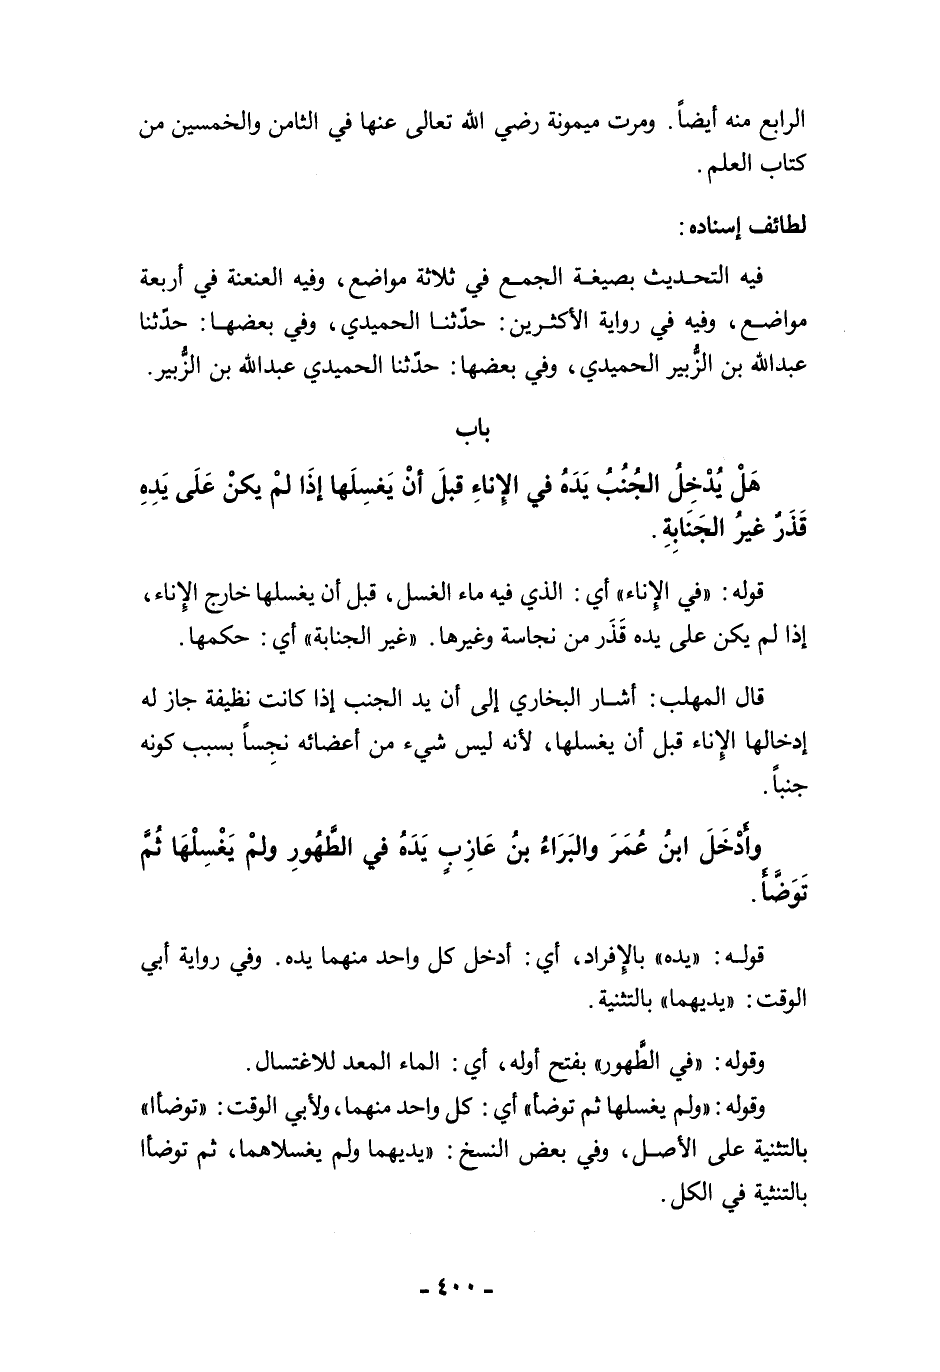 الرابع منه أيضاً. ومرت ميمونة رضي الله تعالى عنها في الثامن والخمسين من
كتاب العلم.
لطائف إسناده:
فيه التحديث بصيغة الجمع في ثلاثة مواضع، وفيه العنعنة في أربعة
مواضع، وفيه في رواية الأكثرين: حدّثنا الحميدي، وفي بعضها: حدّثنا
عبدالله بن الزُّبير الحميدي، وفي بعضها: حدّثنا الحميدي عبدالله بن الزُّبير.
باب
هَلْ يُدْخِلُ الجُنُبُ يَدَهُ في الإِناءِ قبلَ أنْ يَغسِلَها إذَا لمْ يكنْ عَلَى يَدِهِ
قَذَرٌ غيرُ الجَنَابةِ.
قوله: «في الإِناء» أي: الذي فيه ماء الغسل، قبل أن يغسلها خارج الإِناء،
إذا لم يكن على يده قَذَر من نجاسة وغيرها. «غير الجنابة» أي: حكمها.
قال المهلب: أشار البخاري إلى أن يد الجنب إذا كانت نظيفة جاز له
إدخالها الإِناء قبل أن يغسلها، لأنه ليس شيء من أعضائه نجِساً بسبب كونه
جنباً.
وأَدْخَلَ ابنُ عُمَرَ والبَرَاءُ بنُ عَازِبٍ يَدَهُ في الطَّهُورِ ولمْ يَغْسِلْهَا ثُمَّ
تَوَضَّأَ.
قوله: «يده» بالإِفراد، أي: أدخل كل واحد منهما يده. وفي رواية أبي
الوقت: «يديهما» بالتثنية.
وقوله: «في الطَّهور» بفتح أوله، أي: الماء المعد للاغتسال.
وقوله: «ولم يغسلها ثم توضأ» أي: كل واحد منهما، ولأبي الوقت: «توضأا»
بالتثنية على الأصل، وفي بعض النسخ: «يديهما ولم يغسلاهما، ثم توضأا
بالتنثية في الكل.
- ٤٠٠ -